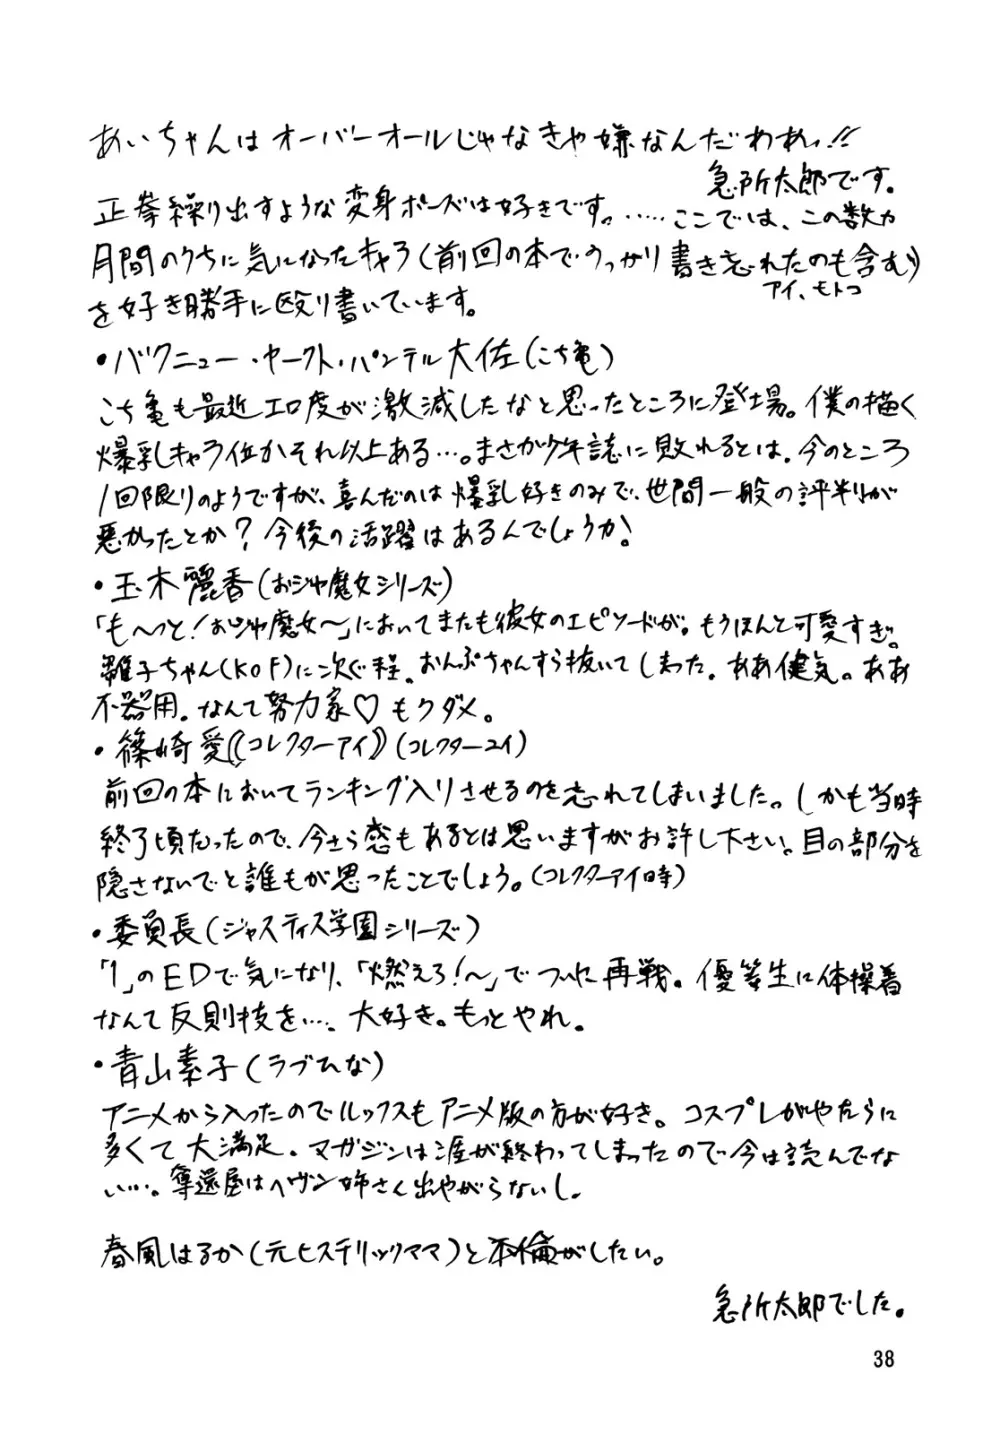 あいちゃんはオーバーオールじゃなきゃ嫌なんだわあっ!!
急所太郎です。
正拳繰り出すような変身ポーズは好きです。……ここでは、この数カ
月間のうちに気になったキャラ(前回の本でうっかり書き忘れたのも含む)
アイ、モトコ
を好き勝手に殴り書いています。
・バクニュー・ヤークト・パンテル大佐(こち亀)
こち亀も最近エロ度が激減したなと思ったところに登場。僕の描く
爆乳キャラ位かそれ以上ある…。まさか少年誌に敗れるとは。今のところ
1回限りのようですが、喜んだのは爆乳好きのみで、世間一般の評判が
悪かったとか?今後の活躍はあるんでしょうか!
・玉木麗香(おジャ魔女シリーズ)
「も〜っと!おジャ魔女〜」においてまたも彼女のエピソードが。もうほんと可愛すぎ。
雛子ちゃん(KOF)に次ぐ程。おんぷちゃんすら抜いてしまった。ああ健気。ああ
不器用。なんて努力家♡もうダメ。
・篠崎愛《コレクターアイ》(コレクターユイ)
前回の本においてランキング入りさせるのを忘れてしまいました。しかも当時
終了頃だったので、今さら感もあるとは思いますがお許し下さい。目の部分を
隠さないでと誰もが思ったことでしょう。(コレクターアイ時)
・委員長(ジャスティス学園シリーズ)
「1」のEDで気になり、「燃えろ!〜」でついに再戦。優等生に体操着
なんて反則技を…、大好き。もっとやれ。
・青山素子(ラブひな)
アニメから入ったのでルックスもアニメ版の方が好き。コスプレがやたらに
多くて大満足。マガジンは涯が終わってしまったので今は読んでな
い…。奪還屋はヘヴン姉さん出やがらないし。
春風はるか(元ヒステリックママ)と不倫がしたい。
急所太郎でした。
38